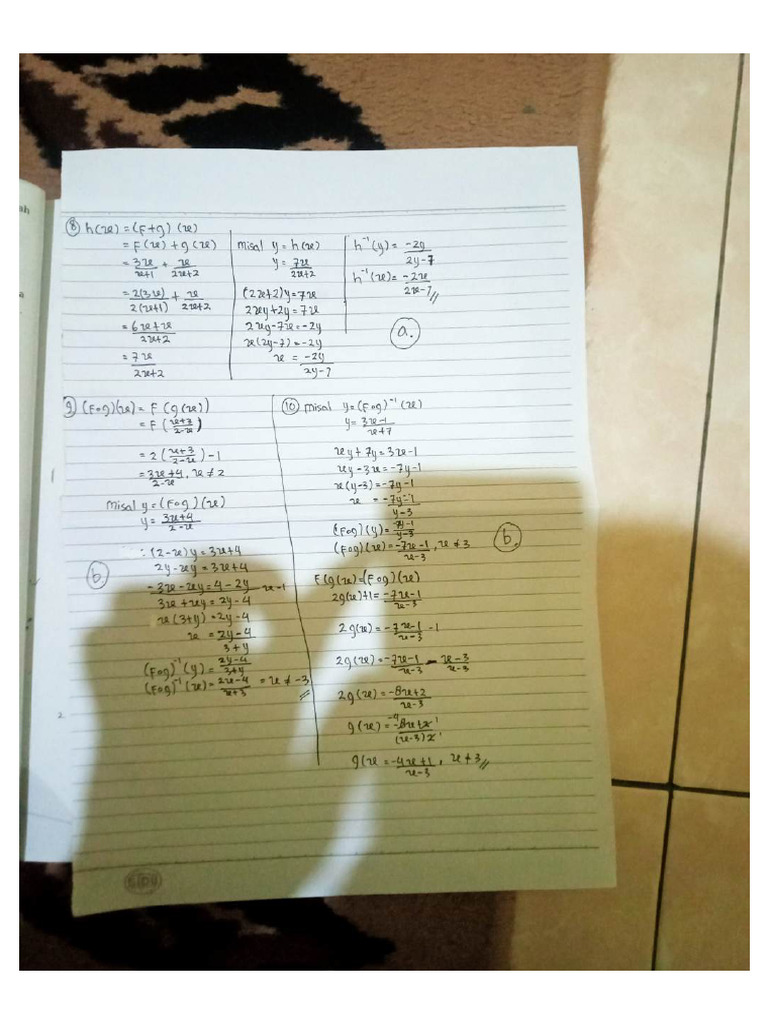 ah
a
8 h(x) = (F+g) (x)
= F(x) + g(x)
= 3x/x+1 + x/2x+2
= 2(3x)/2(x+1) + x/2x+2
= 6x+x/2x+2
= 7x/2x+2
misal y = h(x)
y = 7x/2x+2
(2x+2)y = 7x
2xy+2y = 7x
2xy-7x = -2y
x(2y-7) = -2y
x = -2y/2y-7
h⁻¹(y) = -2y/2y-7
h⁻¹(x) = -2x/2x-7 //
a.
9 (Fog)(x) = F(g(x))
= F(x+3/2-x)
= 2(x+3/2-x) - 1
= 3x+4/2-x, x ≠ 2
misal y = (Fog)(x)
y = 3x+4/2-x
∴ (2-x)y = 3x+4
2y-xy = 3x+4
-3x-xy = 4-2y x-1
3x+xy = 2y-4
x(3+y) = 2y-4
x = 2y-4/3+y
(Fog)⁻¹(y) = 2y-4/3+y
(Fog)⁻¹(x) = 2x-4/x+3 = x ≠ -3 //
b.
10 misal y = (Fog)⁻¹(x)
y = 3x-1/x+7
xy+7y = 3x-1
xy-3x = -7y-1
x(y-3) = -7y-1
x = -7y-1/y-3
(Fog)(y) = -7y-1/y-3
(Fog)(x) = -7x-1/x-3, x ≠ 3
b.
F(g(x) = (Fog)(x)
2g(x)+1 = -7x-1/x-3
2g(x) = -7x-1/x-3 - 1
2g(x) = -7x-1/x-3 - x-3/x-3
2g(x) = -8x+2/x-3
g(x) = -8x+2/(x-3)2
g(x = -4x+1/x-3, x ≠ 3 //
2.
SIDU